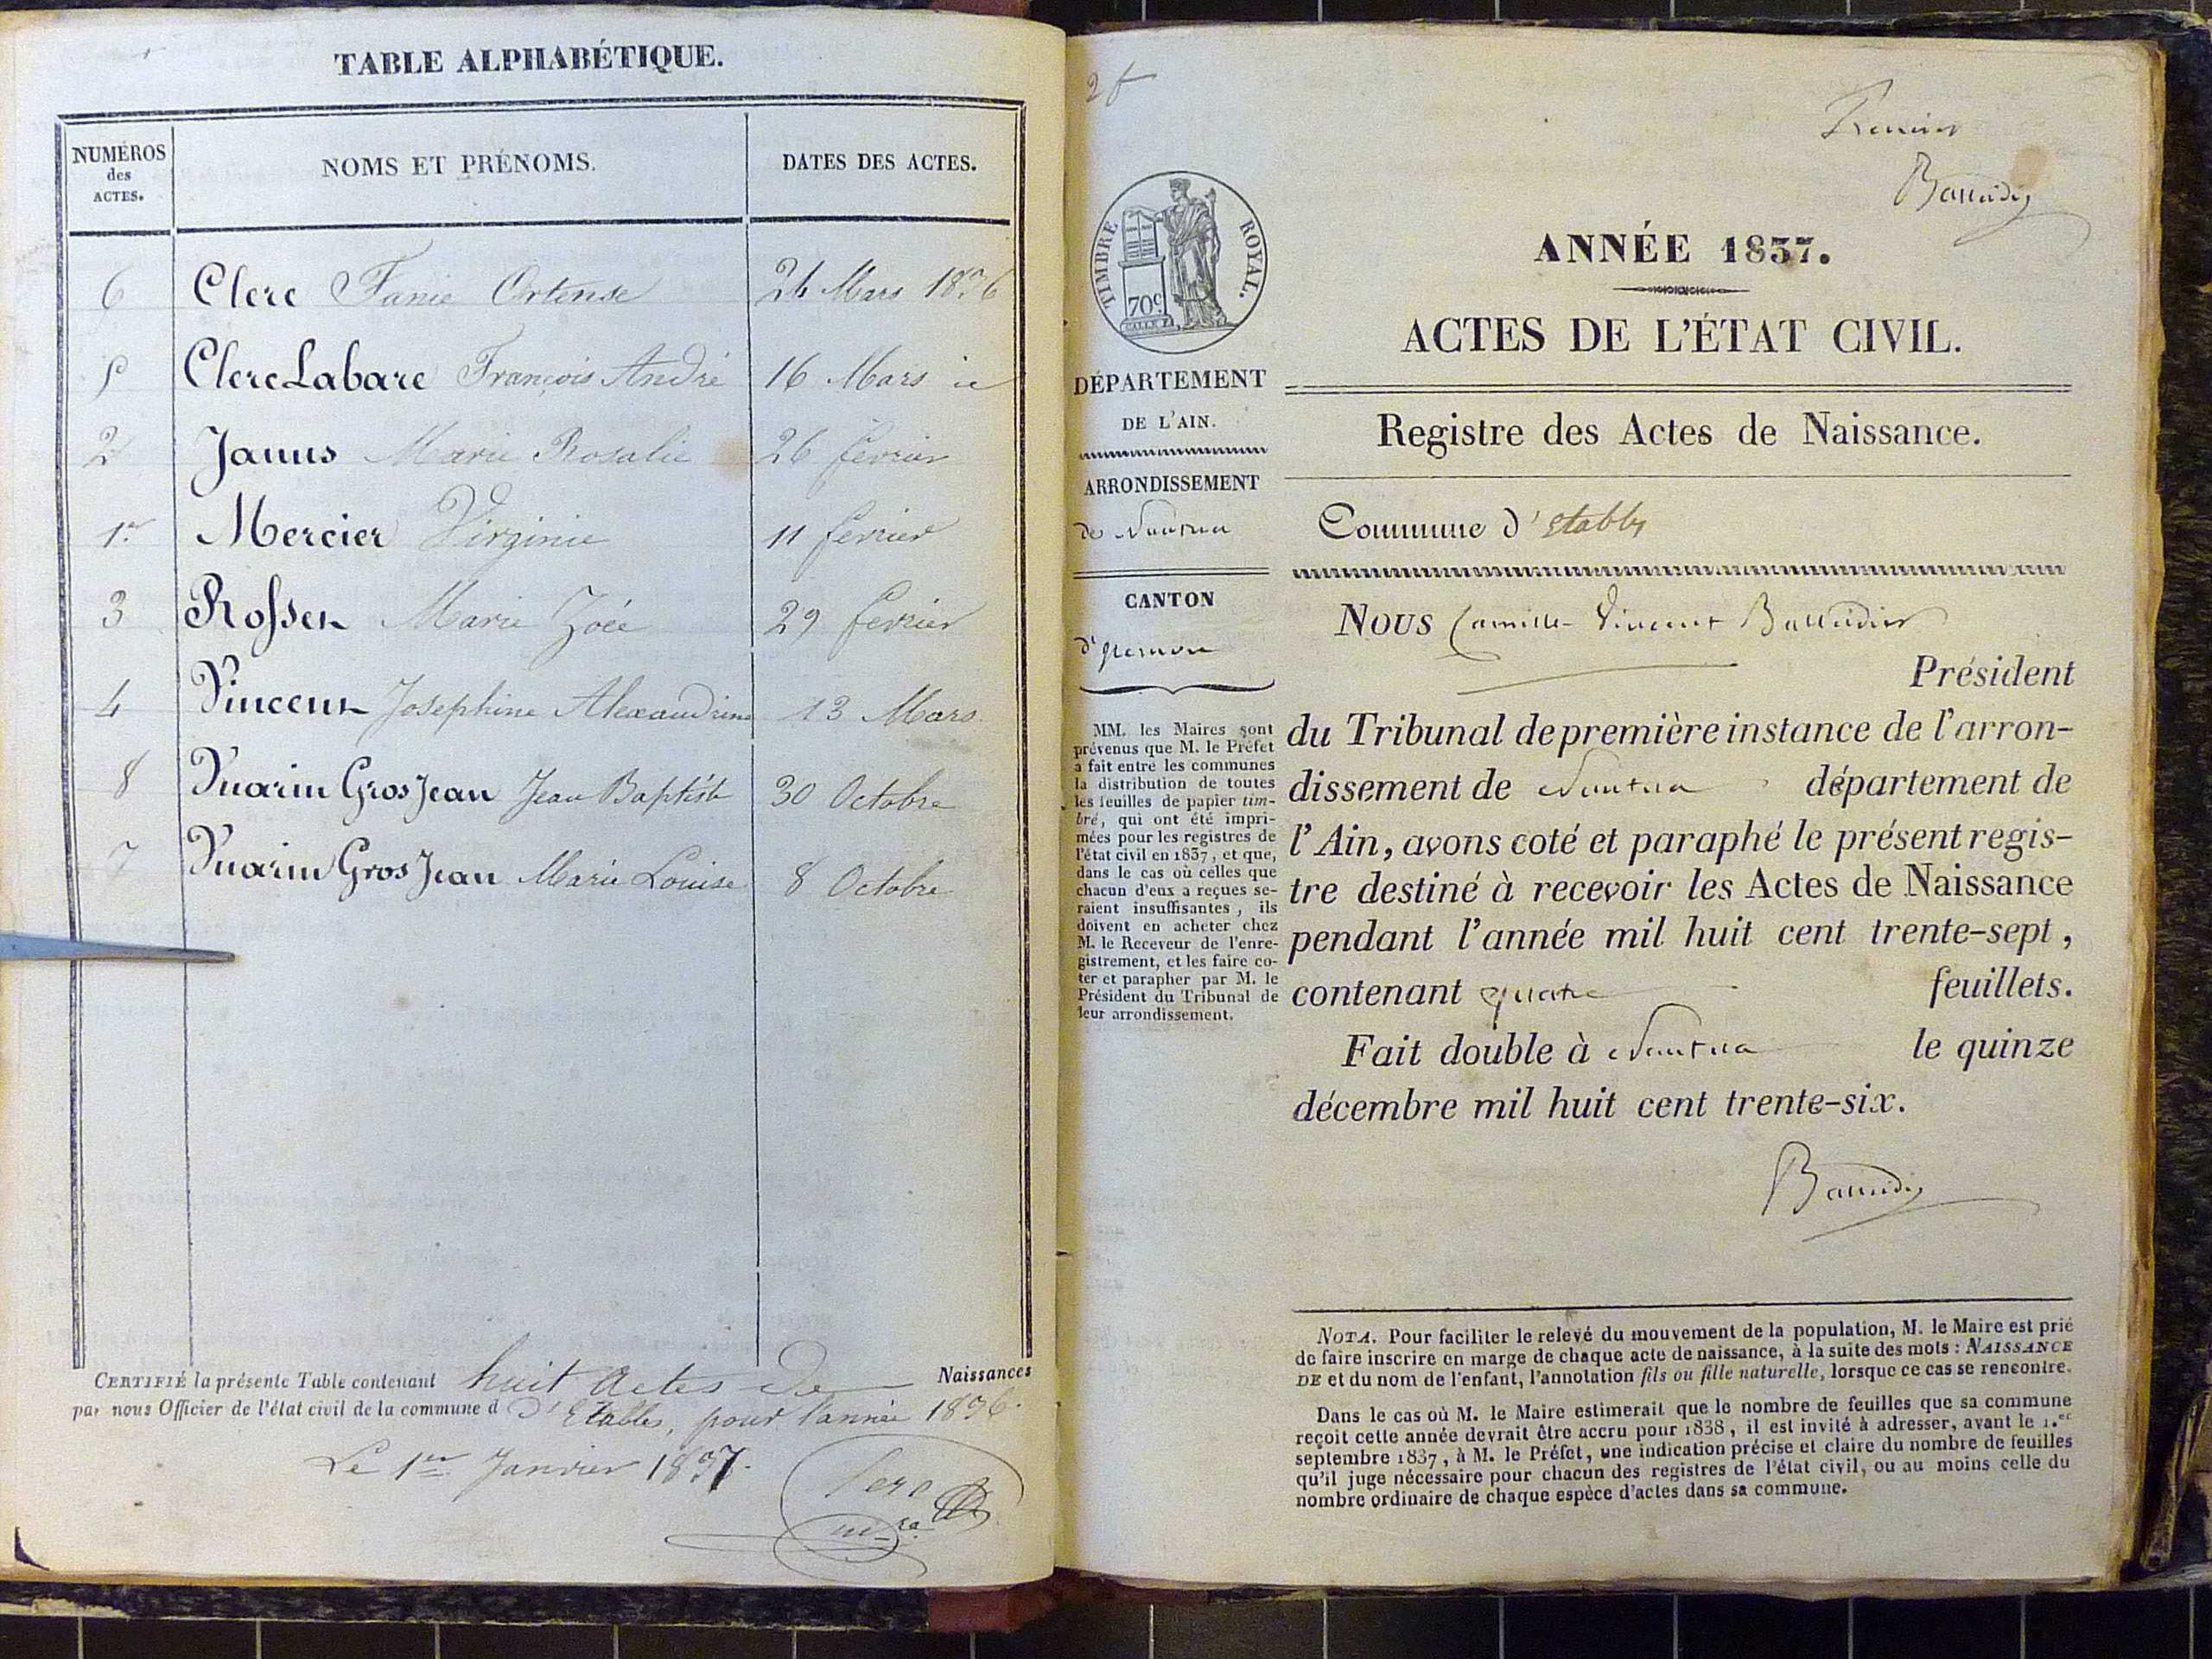 TABLE ALPHABÉTIQUE.
NUMÉROS des ACTES. NOMS ET PRÉNOMS. DATES DES ACTES.
6 Clerc Fanie Ortense 24 Mars 1836
5 Clerc Labare François André 16 Mars ie
2 Janus Marie Rosalie 26 février
1er Mercier Virginie 11 février
3 Rosset Marie Zoée 29 février
4 Vincent Josephine Alexandrine 13 Mars
8 Vuarin Gros Jean Jean Baptiste 30 Octobre
7 Vuarin Gros Jean Marie Louise 8 Octobre
CERTIFIÉ la présente Table contenant huit Actes de Naissances
par nous Officier de l'état civil de la commune d D'Etables, pour l'année 1836.
Le 1er Janvier 1837.
mre
Premier
TIMBRE ROYAL.
70c
DÉPARTEMENT
DE L'AIN.
ARRONDISSEMENT
de Nantua
CANTON
MM. les Maires sont
prévenus que M. le Préfet
a fait entre les communes
la distribution de toutes
les feuilles de papier tim-
bré, qui ont été impri-
mées pour les registres de
l'état civil en 1837, et que,
dans le cas où celles que
chacun d'eux a reçues se-
raient insuffisantes, ils
doivent en acheter chez
M. le Receveur de l'enre-
gistrement, et les faire co-
ter et parapher par M. le
Président du Tribunal de
leur arrondissement.
ANNÉE 1837.
ACTES DE L'ÉTAT CIVIL.
Registre des Actes de Naissance.
Commune d'Etables
NOUS Camille-Vincent Balleidier
Président
du Tribunal de première instance de l'arron-
dissement de Nantua département de
l'Ain, avons coté et paraphé le présent regis-
tre destiné à recevoir les Actes de Naissance
pendant l'année mil huit cent trente-sept,
contenant quatre feuillets.
Fait double à Nantua le quinze
décembre mil huit cent trente-six.
NOTA. Pour faciliter le relevé du mouvement de la population, M. le Maire est prié
de faire inscrire en marge de chaque acte de naissance, à la suite des mots : NAISSANCE
DE et du nom de l'enfant, l'annotation fils ou fille naturelle, lorsque ce cas se rencontre.
Dans le cas où M. le Maire estimerait que le nombre de feuilles que sa commune
reçoit cette année devrait être accru pour 1838, il est invité à adresser, avant le 1.er
septembre 1837, à M. le Préfet, une indication précise et claire du nombre de feuilles
qu'il juge nécessaire pour chacun des registres de l'état civil, ou au moins celle du
nombre ordinaire de chaque espèce d'actes dans sa commune.